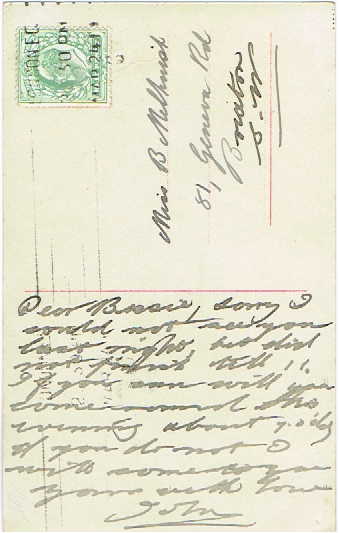 LONDON E.C.
Miss B Melhuish
81, Geneva Rd
Brixton
S.W
Dear Bessie, sorry I
could not see you
last night, but did
not finish till 11.
If you can will you
come round this
evening about 7.0'clk
if you do not I
will come to you
yours with love
John